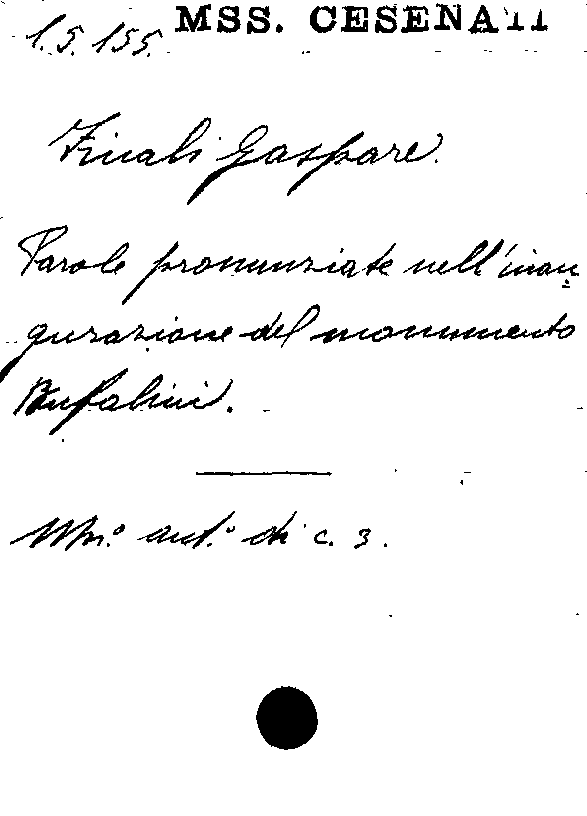 1.5.155. MSS. CESENATI
Finali Gaspare.
Parole pronunziate nell'inau
gurazione del monumento
Bufalini.
Mn.° aut.° di c. 3.